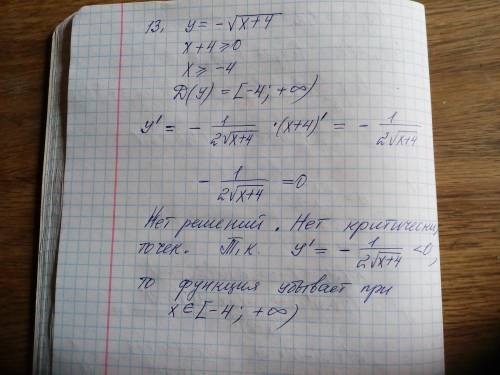 13. y = -√x+4
x+4 ≥ 0
x ≥ -4
D(y) = [-4; +∞)
y' = - 1/2√x+4 · (x+4)' = - 1/2√x+4
- 1/2√x+4 = 0
Нет решений. Нет критически,
точек. Т.к. y' = - 1/2√x+4 < 0,
то функция убывает при
x ∈ [-4; +∞)